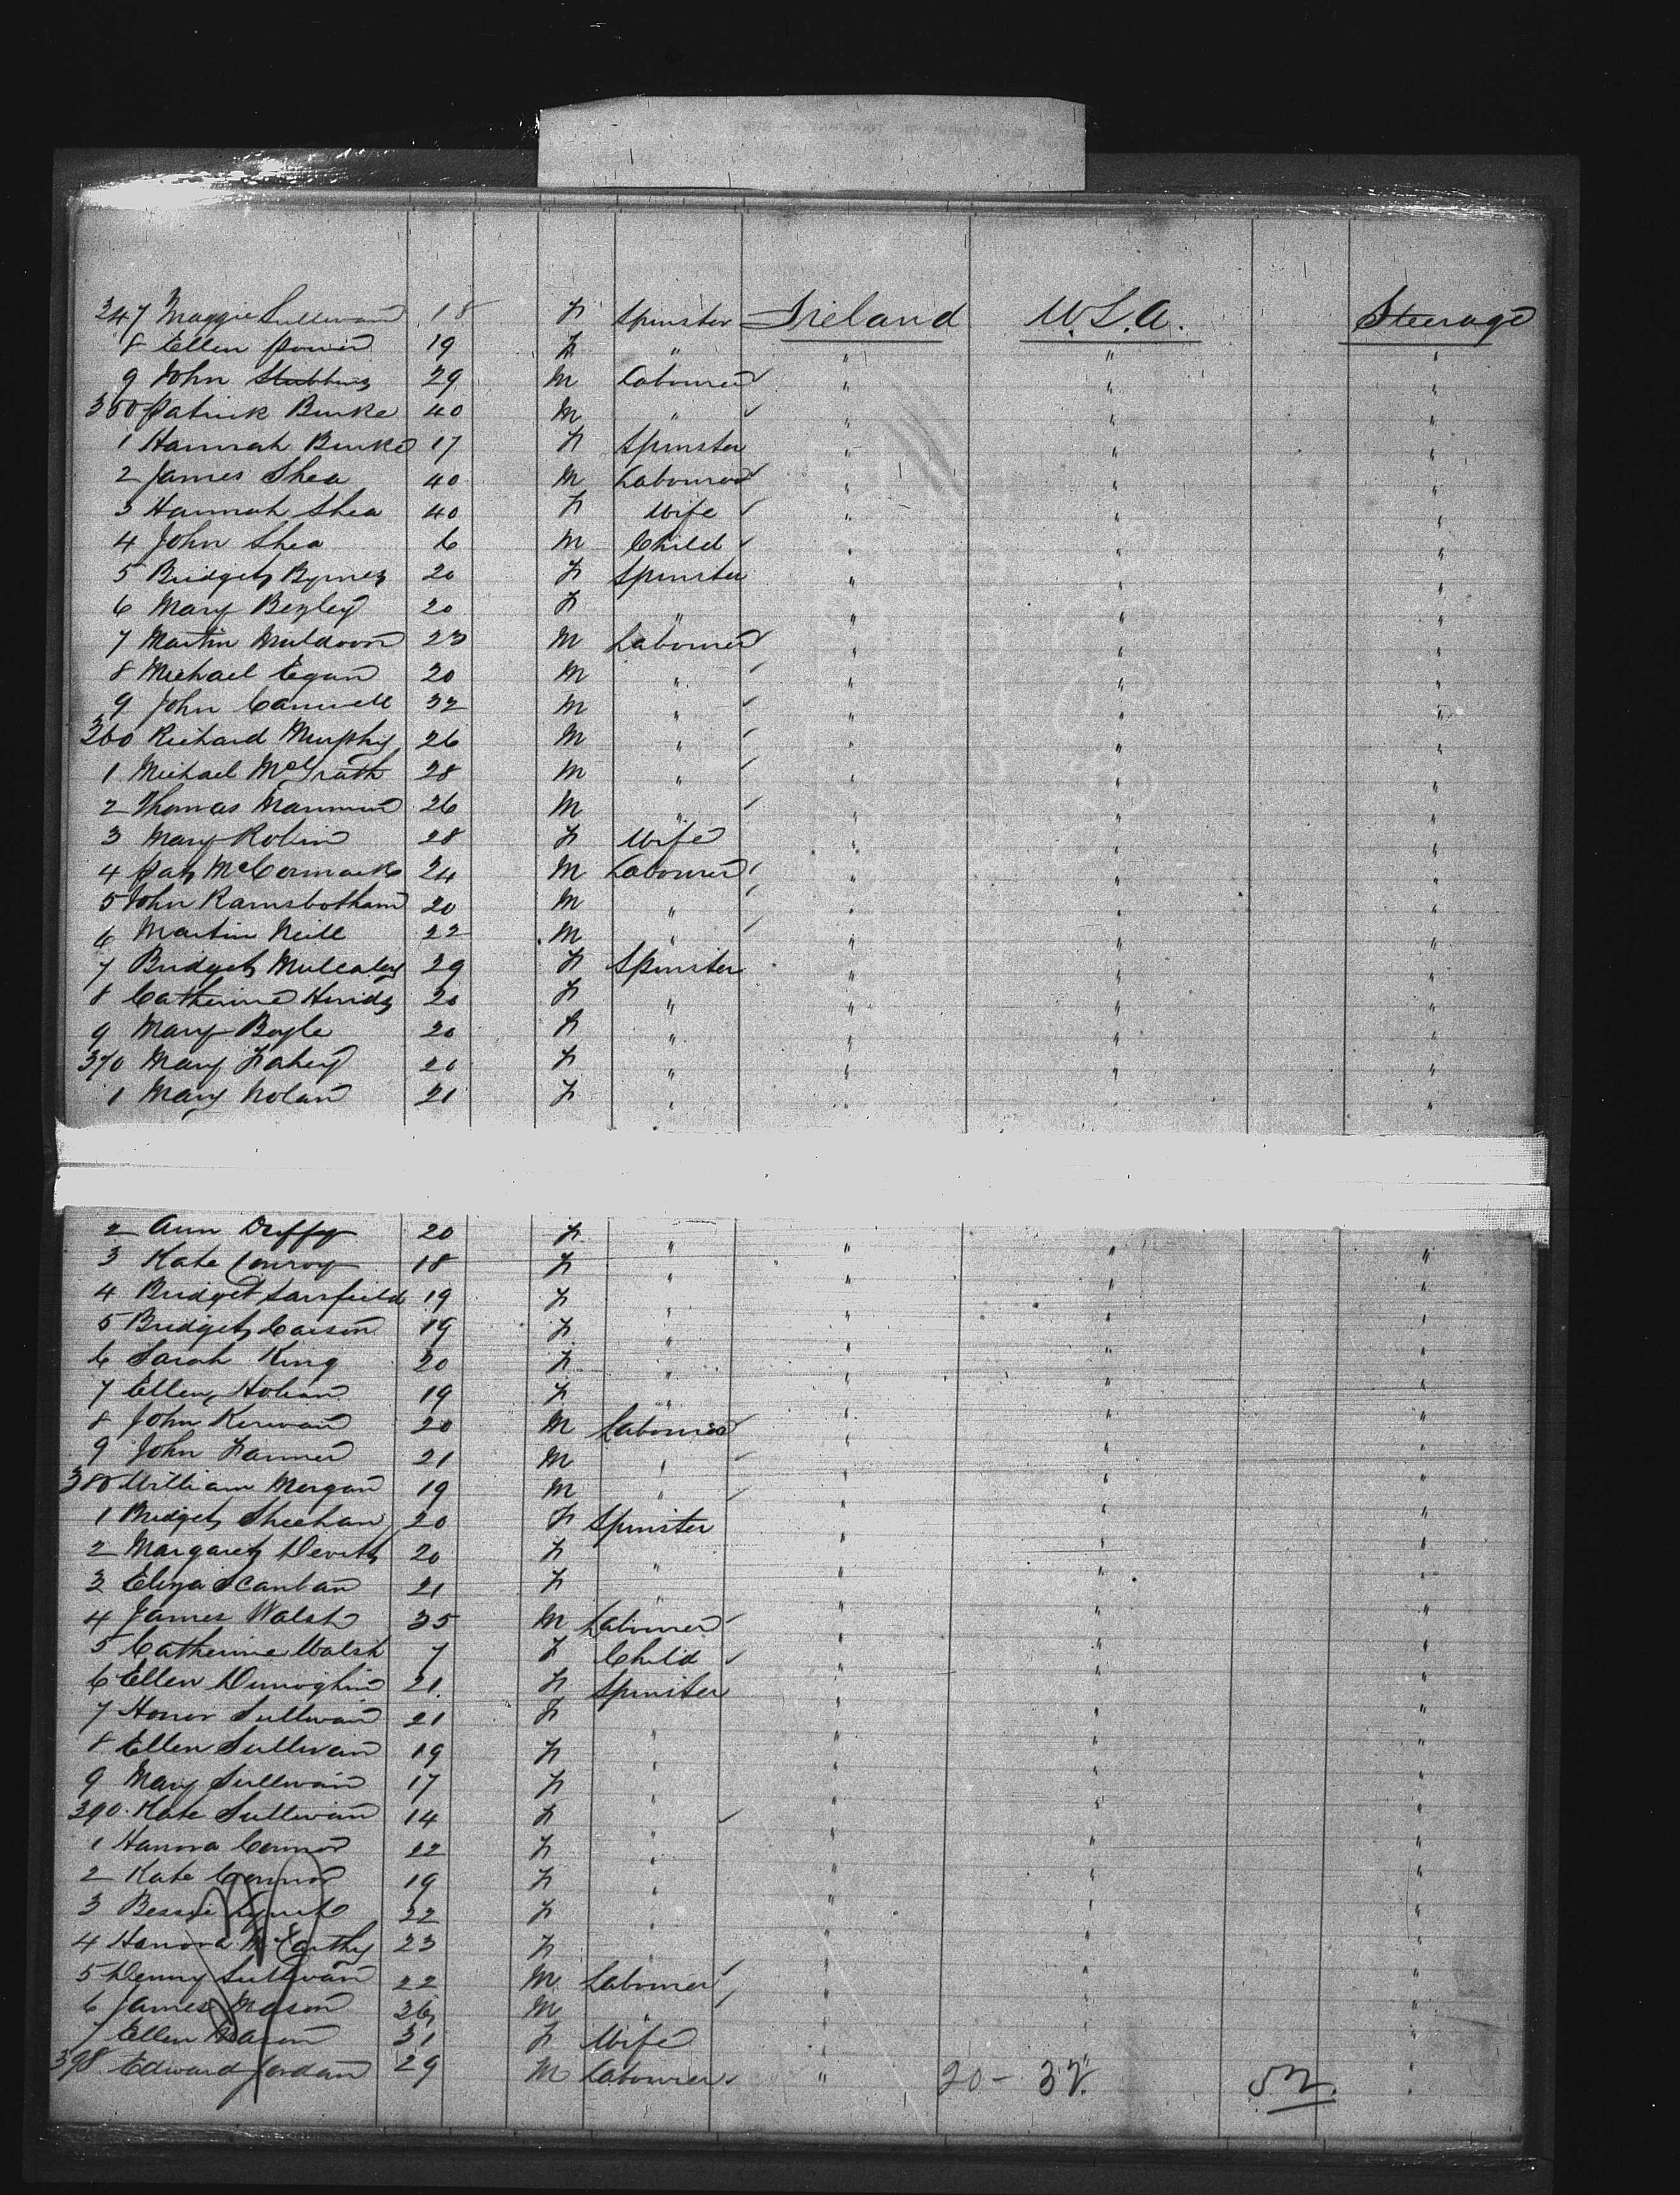 347 Maggie Sullivan 18 F Spinster Ireland U.S.A. Steerage
8 Ellen Power 19 F " " " "
9 John Stubbins 29 M Labourer " " "
350 Patrick Burke 40 M " " " "
1 Hannah Burke 17 F Spinster " " "
2 James Shea 40 M Labourer " " "
3 Hannah Shea 40 F Wife " " "
4 John Shea 6 M Child " " "
5 Bridget Byrnes 20 F Spinster " " "
6 Mary Begley 20 F " " " "
7 Martin Muldoon 23 M Labourer " " "
8 Michael Egan 20 M " " " "
9 John Cantwell 32 M " " " "
360 Richard Murphy 26 M " " " "
1 Michael McGrath 28 M " " " "
2 Thomas 26 M " " " "
3 Mary Robin 28 F Wife " " "
4 Pat McCormack 24 M Labourer " " "
5 John Ramsbotham 20 M " " " "
6 Martin Neill 22 M " " " "
7 Bridget Mulcahy 29 F Spinster " " "
8 Catherine 20 F " " " "
9 Mary Boyle 20 F " " " "
370 Mary Fahey 20 F " " " "
1 Mary Nolan 21 F " " " "
2 Ann Duffy 20 F " " " "
3 Kate Conroy 18 F " " " "
4 Bridget Sarsfield 19 F " " " "
5 Bridget Carson 19 F " " " "
6 Sarah King 20 F " " " "
7 Ellen Hoban 19 F " " " "
8 John Kerwan 20 M Labourer " " "
9 John Farmer 21 M " " " "
380 William Morgan 19 M " " " "
1 Bridget Sheehan 20 F Spinster " " "
2 Margaret Devitt 20 F " " " "
3 Eliza Scanlan 21 F " " " "
4 James Walsh 35 M Labourer " " "
5 Catherine Walsh 7 F Child " " "
6 Ellen 21 F Spinster " " "
7 Honor Sullivan 21 F " " " "
8 Ellen Sullivan 19 F " " " "
9 Mary Sullivan 17 F " " " "
390 Kate Sullivan 14 F " " " "
1 Hanora Connor 22 F " " " "
2 Kate Connor 19 F " " " "
3 Bessie Lynch 22 F " " " "
4 Hanora McCarthy 23 F " " " "
5 Denny Sullivan 22 M Labourer " " "
6 James Mason 36 M " " " "
7 Ellen Mason 31 F Wife " " "
398 Edward Jordan 29 M Labourer " 20 - 32 52 "